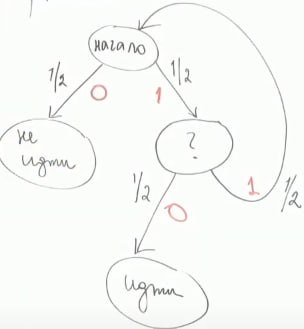 начало
1/2
0
1
1/2
не
идти
?
1/2
0
1
1/2
идти